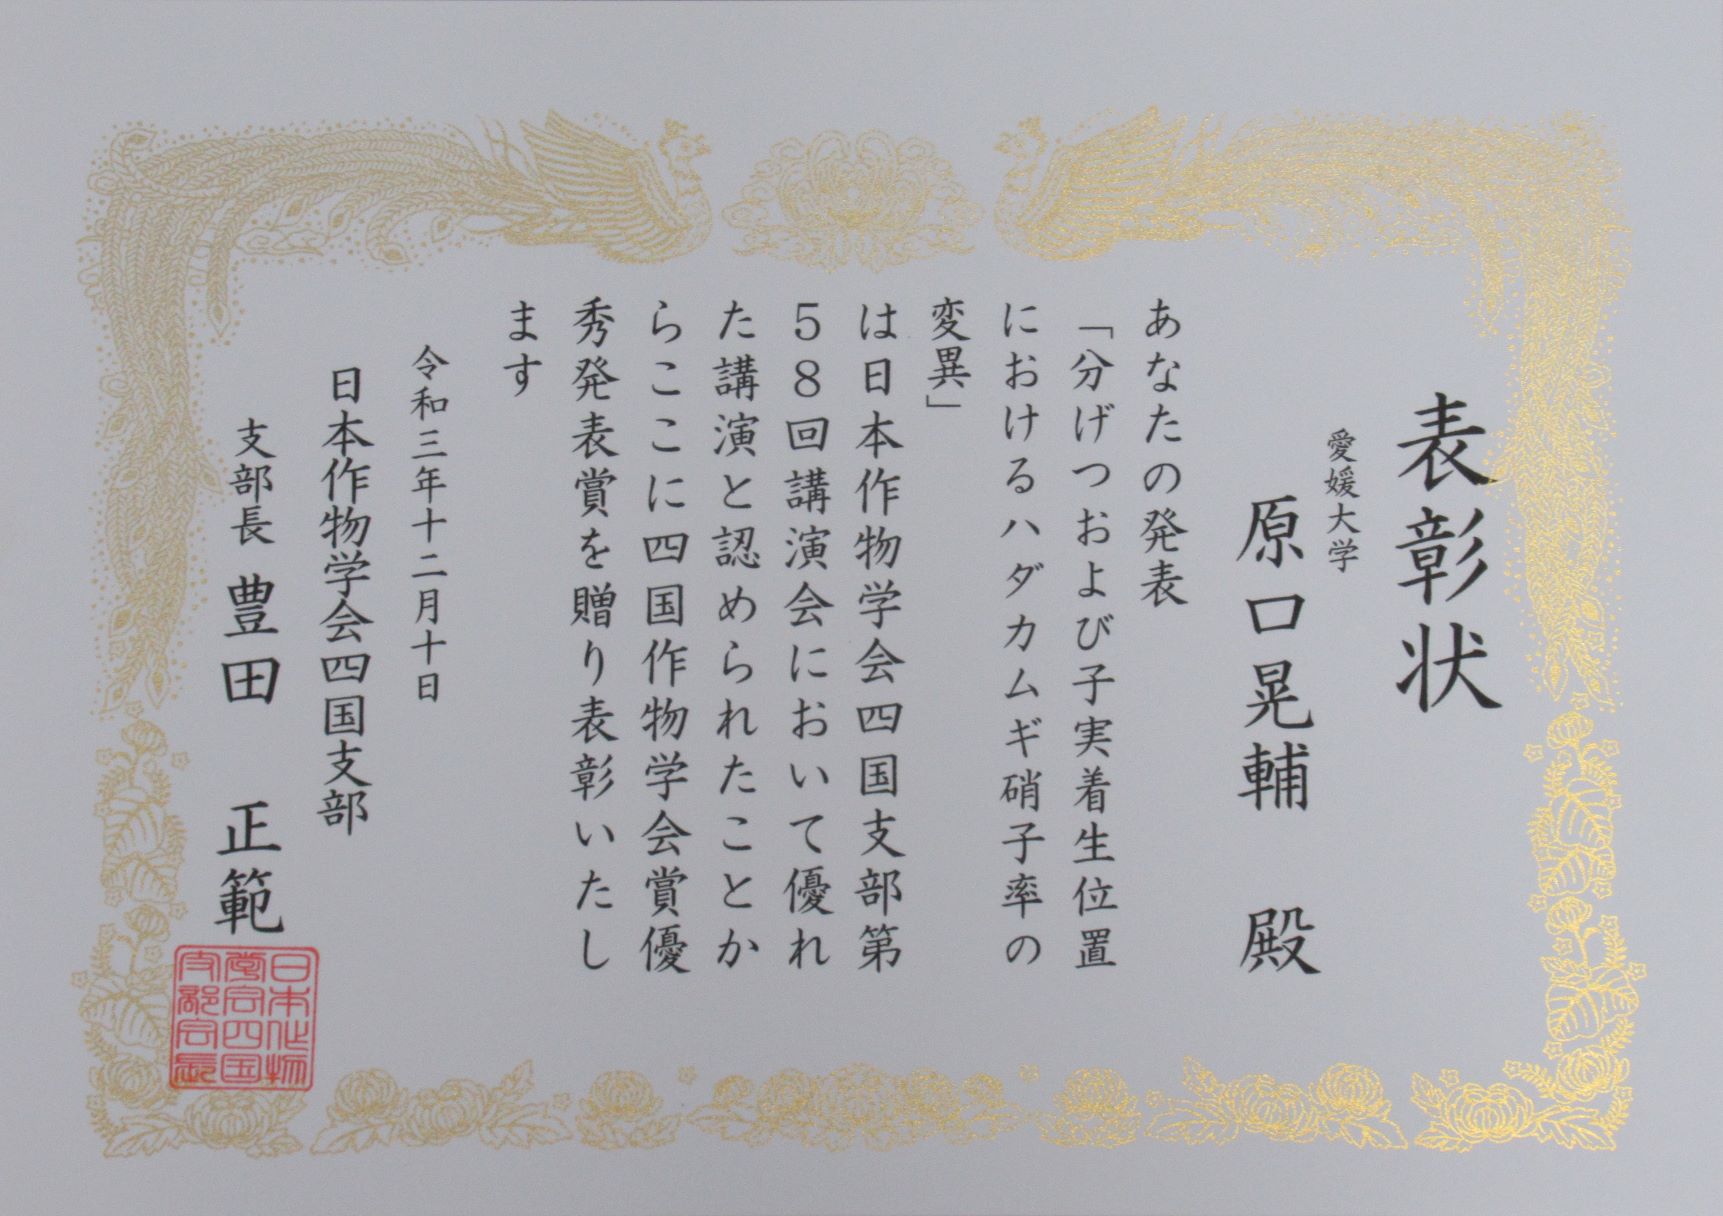 表彰状
愛媛大学
原口晃輔 殿
あなたの発表
「分げつおよび子実着生位置
におけるハダカムギ硝子率の
変異」
は日本作物学会四国支部第
５８回講演会において優れ
た講演と認められたことか
らここに四国作物学会賞優
秀発表賞を贈り表彰いたし
ます
令和三年十二月十日
日本作物学会四国支部
支部長 豊田 正範
日本作物
学会四国
支部会長